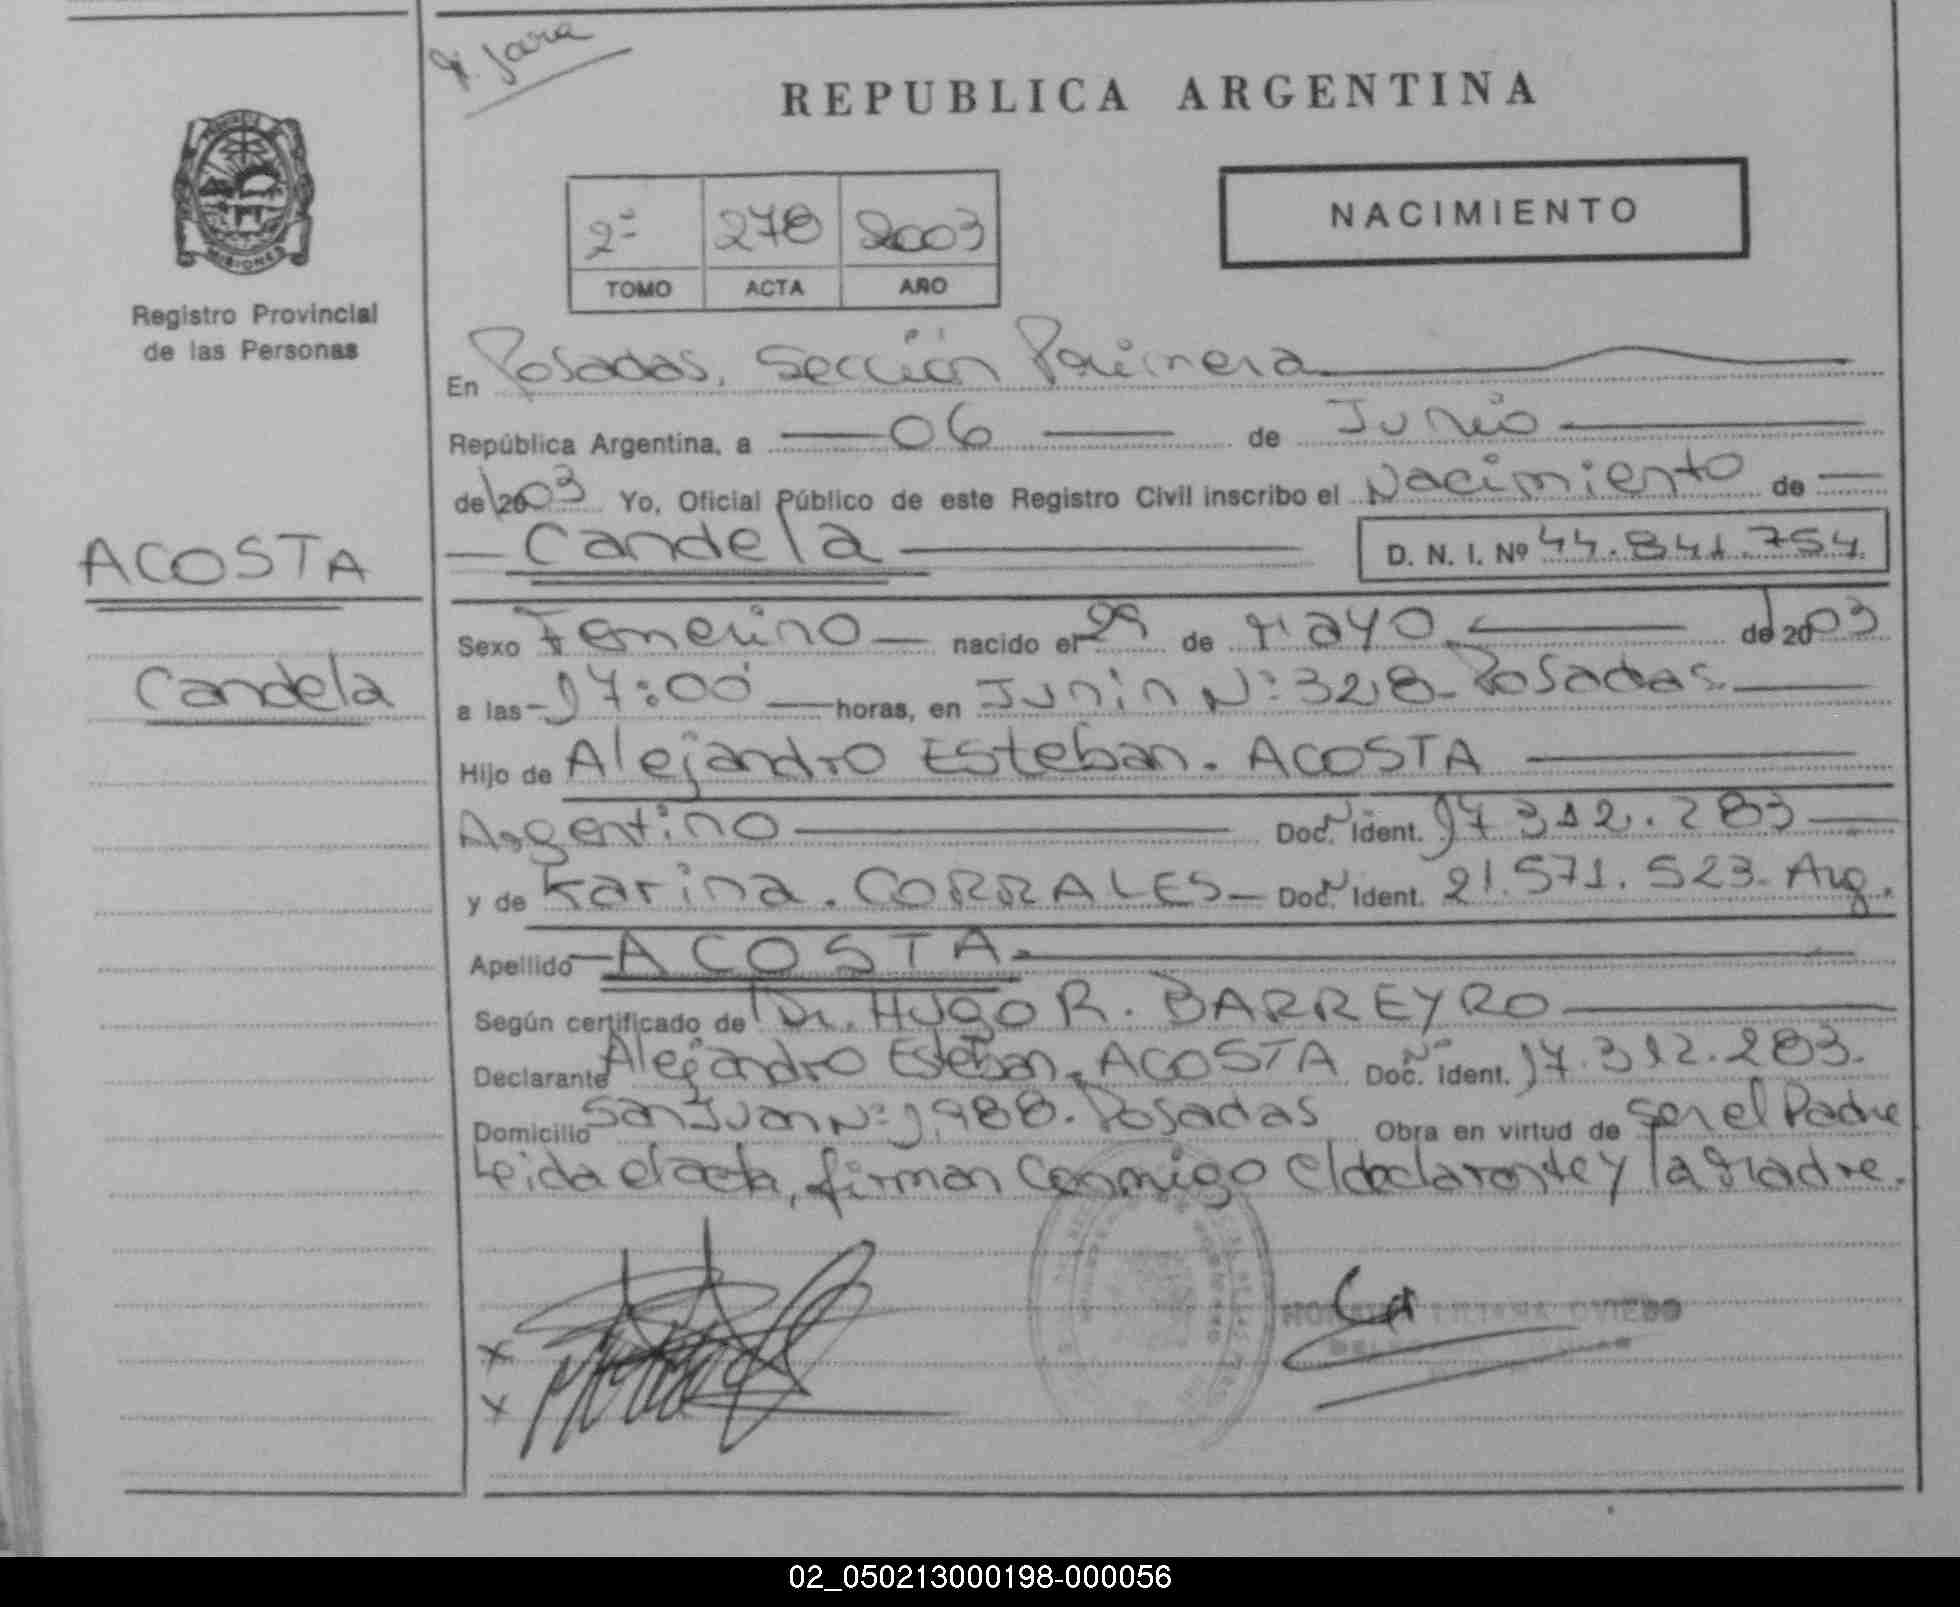 REPUBLICA ARGENTINA
MISIONES
Registro Provincial
de las Personas
2º 278 2003
TOMO ACTA AÑO
NACIMIENTO
En Posadas, Sección Primera
República Argentina, a 06 de Junio
de 2003 Yo, Oficial Público de este Registro Civil inscribo el Nacimiento de
Candela D. N. I. Nº 44.841.754
ACOSTA
Candela
Sexo Femenino nacido el 29 de Mayo de 2003
a las 17:00 horas, en Junin Nº 328 - Posadas
Hijo de Alejandro Esteban. ACOSTA
Argentino Doc. Nº Ident. 17.312.283
y de Karina. CORRALES Doc. Nº Ident. 21.571.523. Arg.
Apellido ACOSTA
Según certificado de Dr. HUGO R. BARREYRO
Declarante Alejandro Esteban. ACOSTA Doc. Nº Ident. 17.312.283.
Domicilio San Juan Nº 1.988. Posadas Obra en virtud de ser el Padre
Leida el acta, firman Conmigo el declarante y la Madre.
LILIANA OVIEDO
02_050213000198-000056